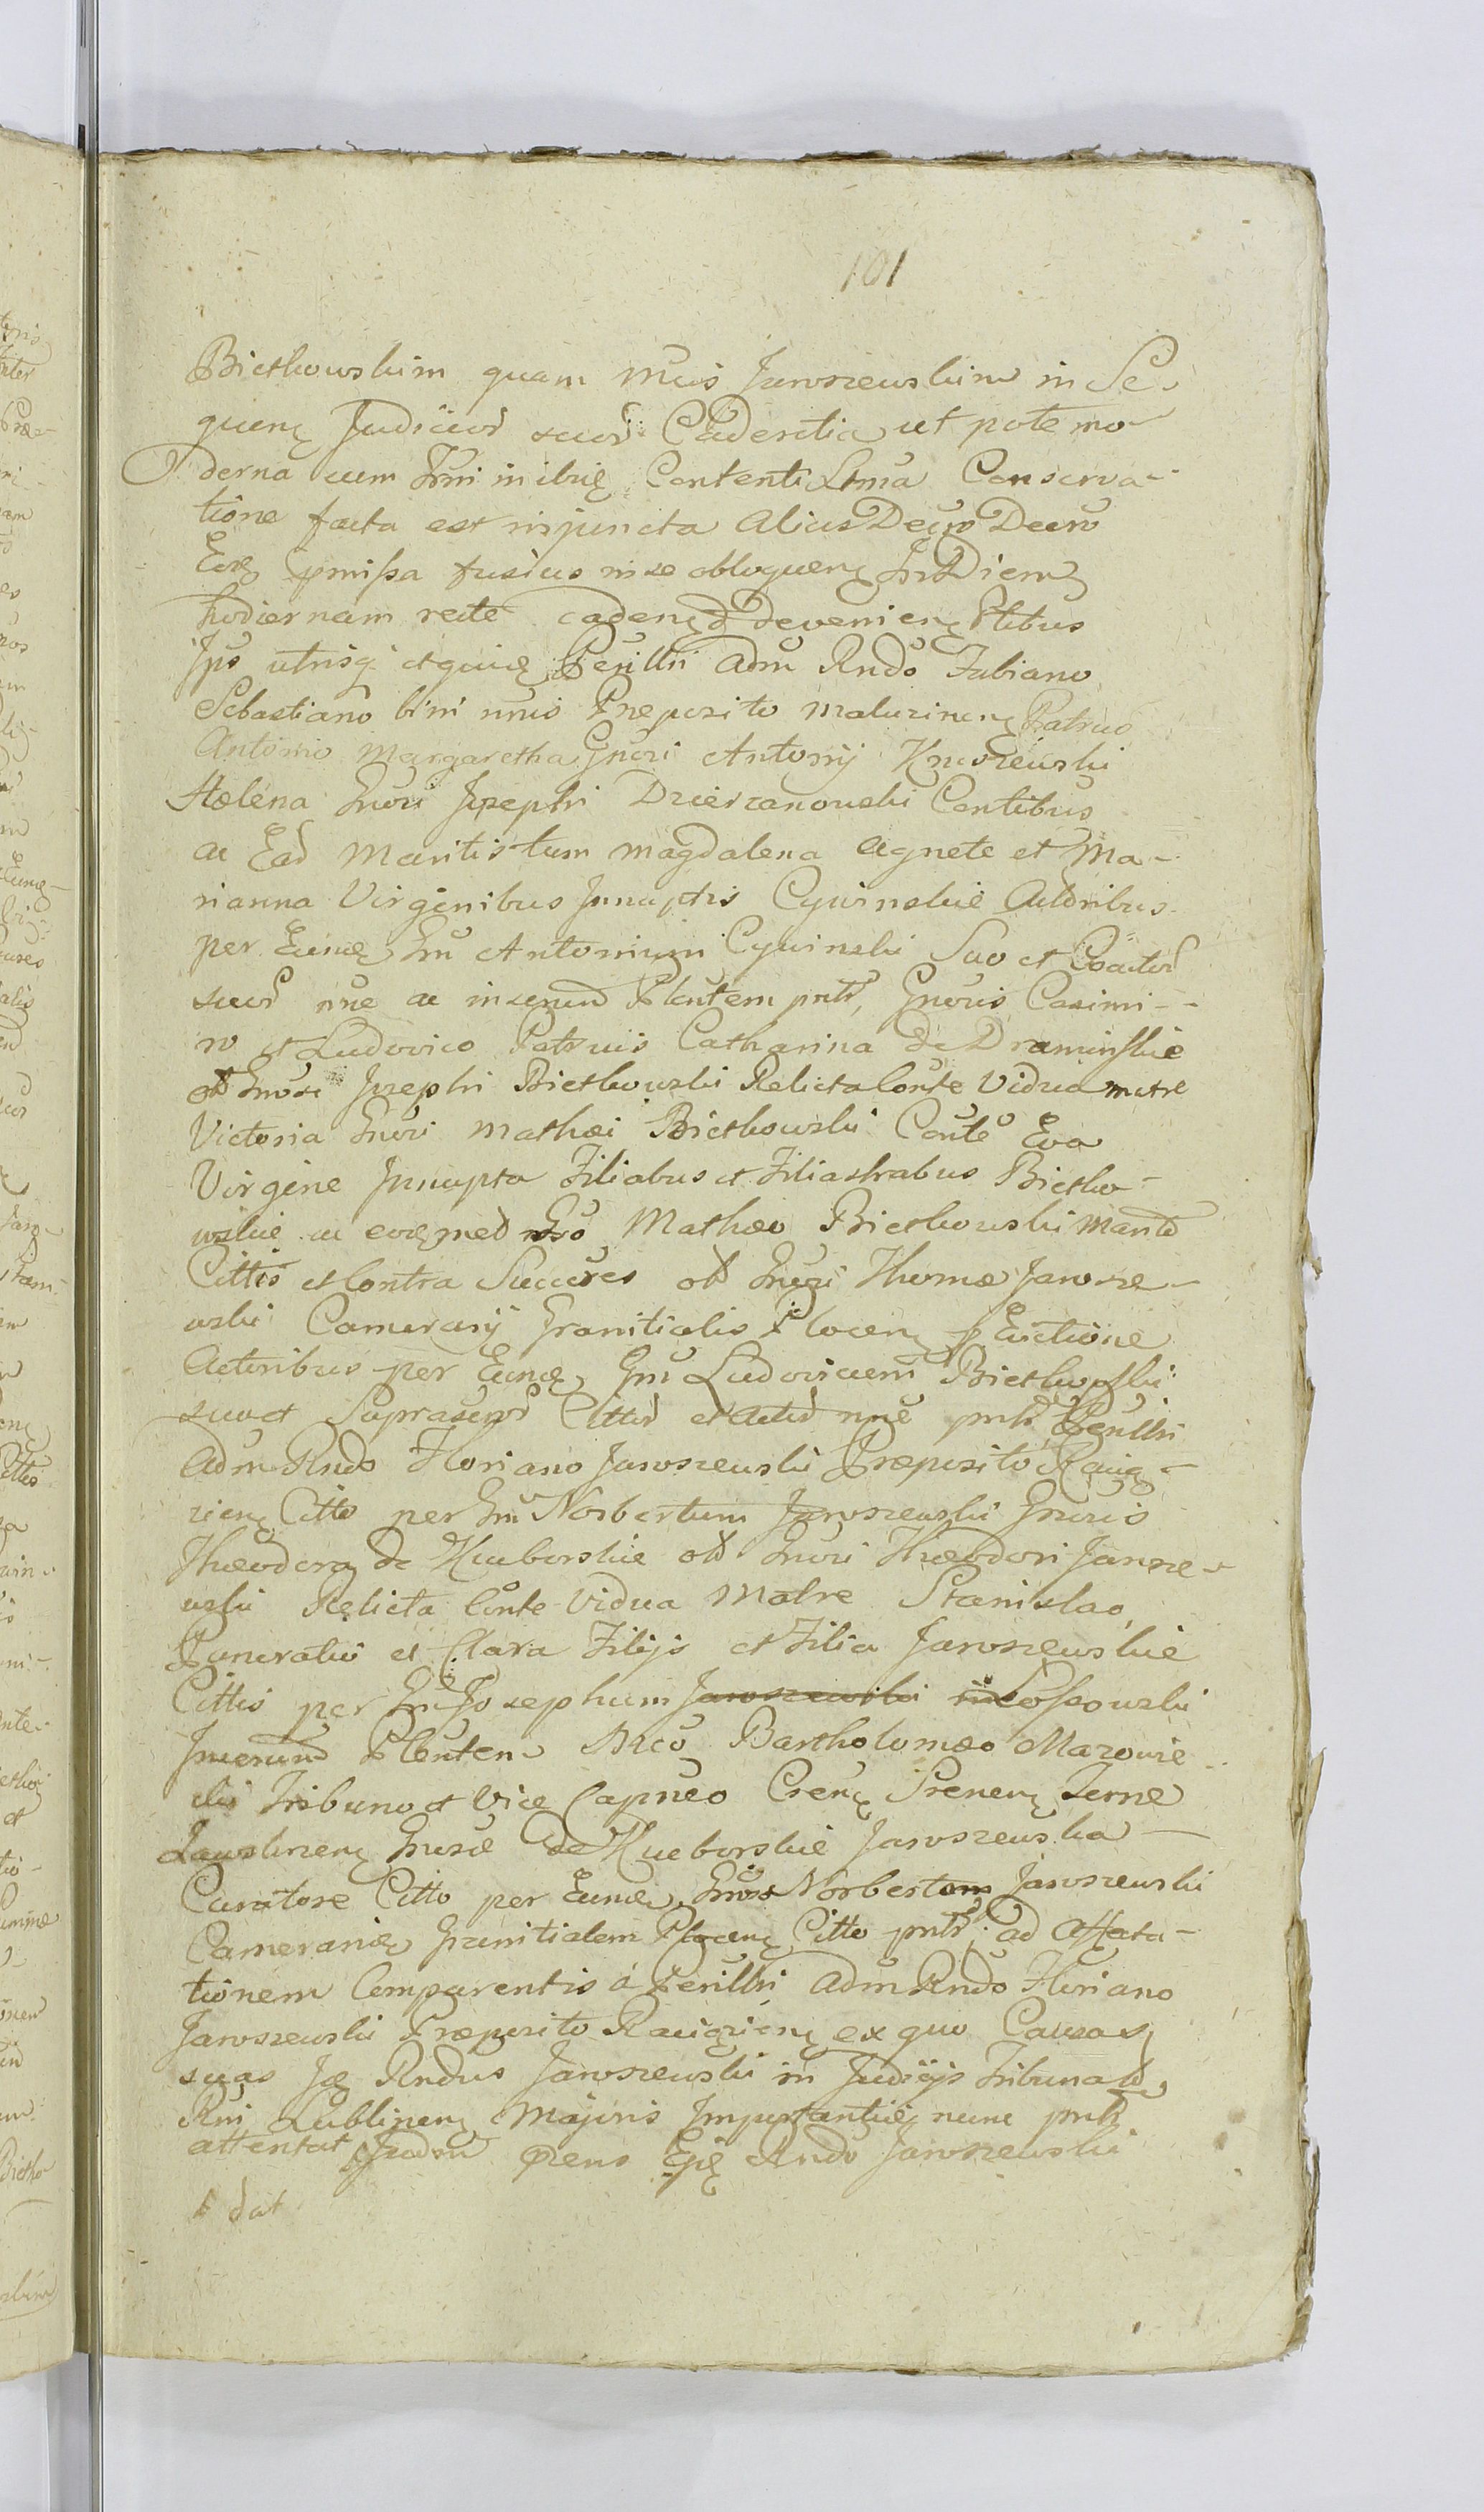 101
Bietkowskim quam mūis Jaroszewskim in Se-
quenę Judiciord suord Cadentia ut pote mo-
derna cum Trni in ibię Contenti Lima Conserva-
tione facta est injuncta Alias Decro Decro
Eorę pmissa fusius in se obloquenę In Diem
hodiernam recte cadenę devenienę Ptibus
Ips utrisq etquię Perillri Adm Rndo Fabiano
Sebastiano bini nūis Preposito maluzinenę Patruo
Antonio Margaretha Gnōri Antonij Knoszewski
Hælena Gnōri Josephi Dzierzanowski Contibus
ac Ead Maritis tum Magdalena Agnete et Ma-
rianna Virginibus Innuptis Cywinskie Actoribus
per Eunę Gn̄ Antonium Cywinski Suo et Coactord
suord nne ac inserend Plentem pntr, Gnōris Casimi-
ro et Ludovico Patruis Catharina de Draminskie
ol Gnōri Josephi Bietkowski Relicta Conte Vidua matre
Victoria Gnōri Mathæi Bietkowski Conte Eva
Virgine Innupta Filiabus et Filiastrabus Bietko-
wskie ac eoręmed Gro Mathæo Bietkowski Marito
Cittis et Contra Succōres ol Gnōri Thomæ Jarosze-
wski Camerarij Granitialis Plocenę p Evictione
Actoribus per Eunę Gn̄ Ludovicum Bietkowski
suo et Suprascrord Cittord et Actord nne pntr Perillri
Adm Rndo Floriano Jaroszewski Præposito Racią-
zienę Citto per Gn̄ Norbertum Jaroszewski Gnōris
Theodora de Kuczborskie ol Gnōri Theodori Jarosze-
wski Relicta Conte Vidua Matre Stanislao,
Pancratio et Clara Filijs et Filia Jaroszewskie
Cittis per Gn̄ Josephum Jaroszewski Lossowski
Inserend Plenten Mco Bartholomæo Mazowie
cki Tribuno et Vice Capneo Crenę Srenenę Terræ
Zawskrzenę Gnōræ de Kuczborskie Jaroszewska
Curatore Citto per Eunę Gnōr Norbertum Jaroszewski
Camerarię Granitialem Plocenę Citto pntr; ad Affecta-
tionem Comparentis á Perillri Adm Rndo Floriano
Jaroszewski Præposito Raciązienę ex quo Causas
suas Jię Rndus Jaroszewski in Judicijs Tribunald
Rni Lublinenę Majoris Importantiæ nunc pntr
attentat Judm pręns Ejię Rndo Jaroszewski
dat